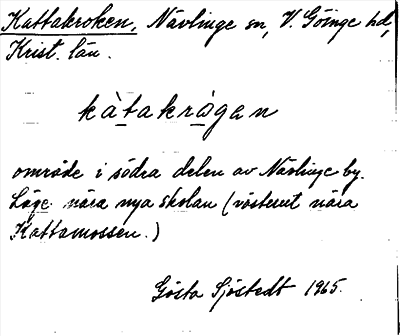 Kattakroken, Nävlinge sn, V. Göinge hd,
Krist. län.
kàtakrågan
område i södra delen av Nävlinge by.
Läge nära nya skolan (västerut nära
Kattamossen.)
Gösta Sjöstedt 1965.